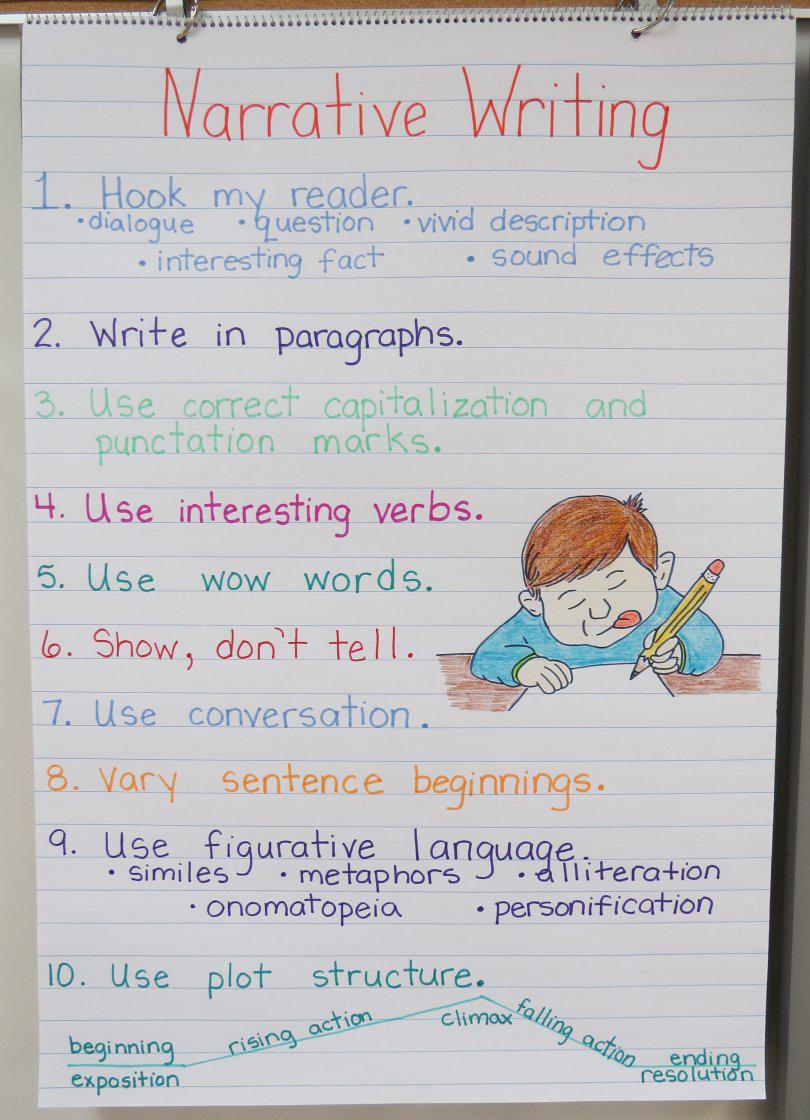 Narrative Writing
1. Hook my reader.
•dialogue •question •vivid description
•interesting fact •sound effects
2. Write in paragraphs.
3. Use correct capitalization and
punctation marks.
4. Use interesting verbs.
5. Use wow words.
6. Show, don't tell.
7. Use conversation.
8. Vary sentence beginnings.
9. Use figurative language.
•similes •metaphors •alliteration
•onomatopeia •personification
10. Use plot structure.
beginning rising action climax falling action ending
exposition resolution